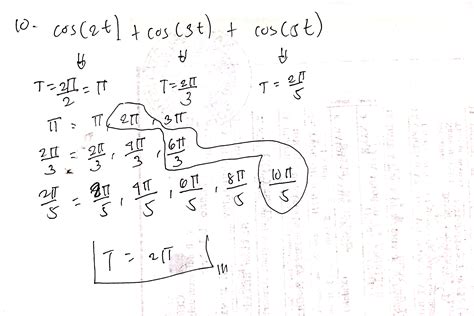 10. cos(2t) + cos(3t) + cos(5t)
⇓ ⇓ ⇓
T = 2π/2 = π T = 2π/3 T = 2π/5
π = π, 2π, 3π
2π/3 = 2π/3, 4π/3, 6π/3
2π/5 = 2π/5, 4π/5, 6π/5, 8π/5, 10π/5
T = 2π